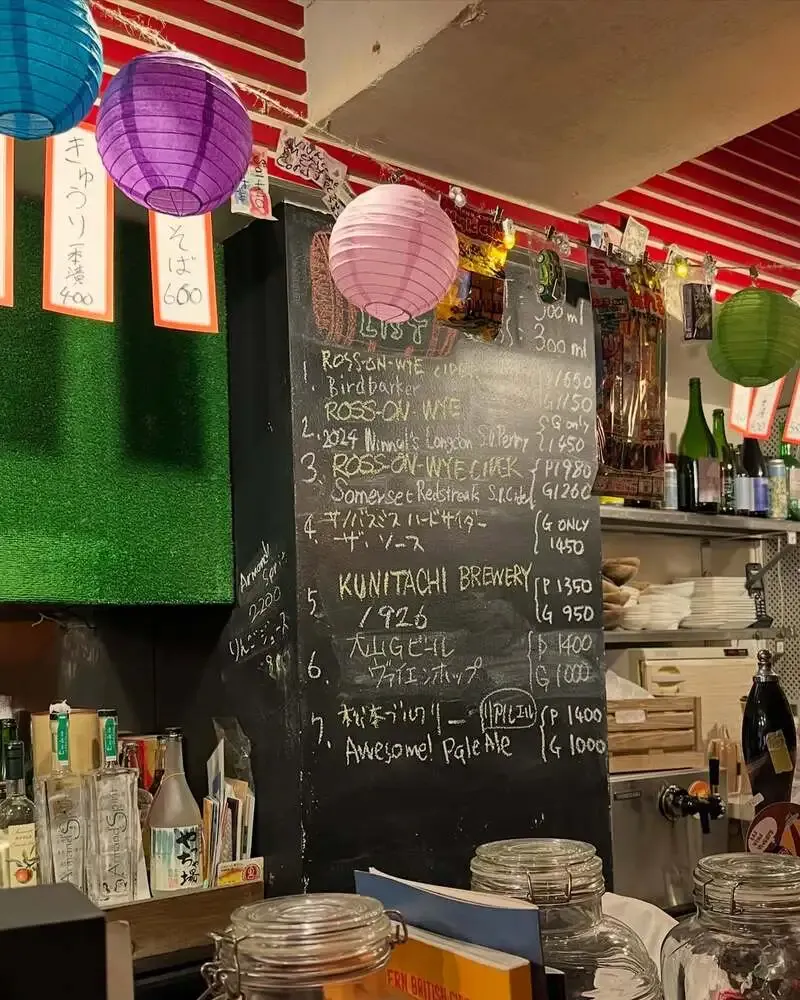 きゅうり
一本漬
400
そば
600
LIST
300 ml
1. ROSS-ON-WYE CIDER
Birdbarker
P1650
G1150
2. ROSS-ON-WYE
2024 Ninnal's Longdon S.V Perry
G only
1450
3. ROSS-ON-WYE CIDER
Somerset Redstreak S.V. Cider
P1980
G1260
4. サノバスミス ハードサイダー
ザ・ソース
G ONLY
1450
5. KUNITACHI BREWERY
1926
P 1350
G 950
6. 大山Gビール
ヴァイエンホップ
P 1400
G 1000
7. 松本ブルワリー
Awesome! Pale Ale
P 1400
G 1000
Amand Spirit
2200
りんごジュース
Amand Spirit
やっちゃ場
BRITISH